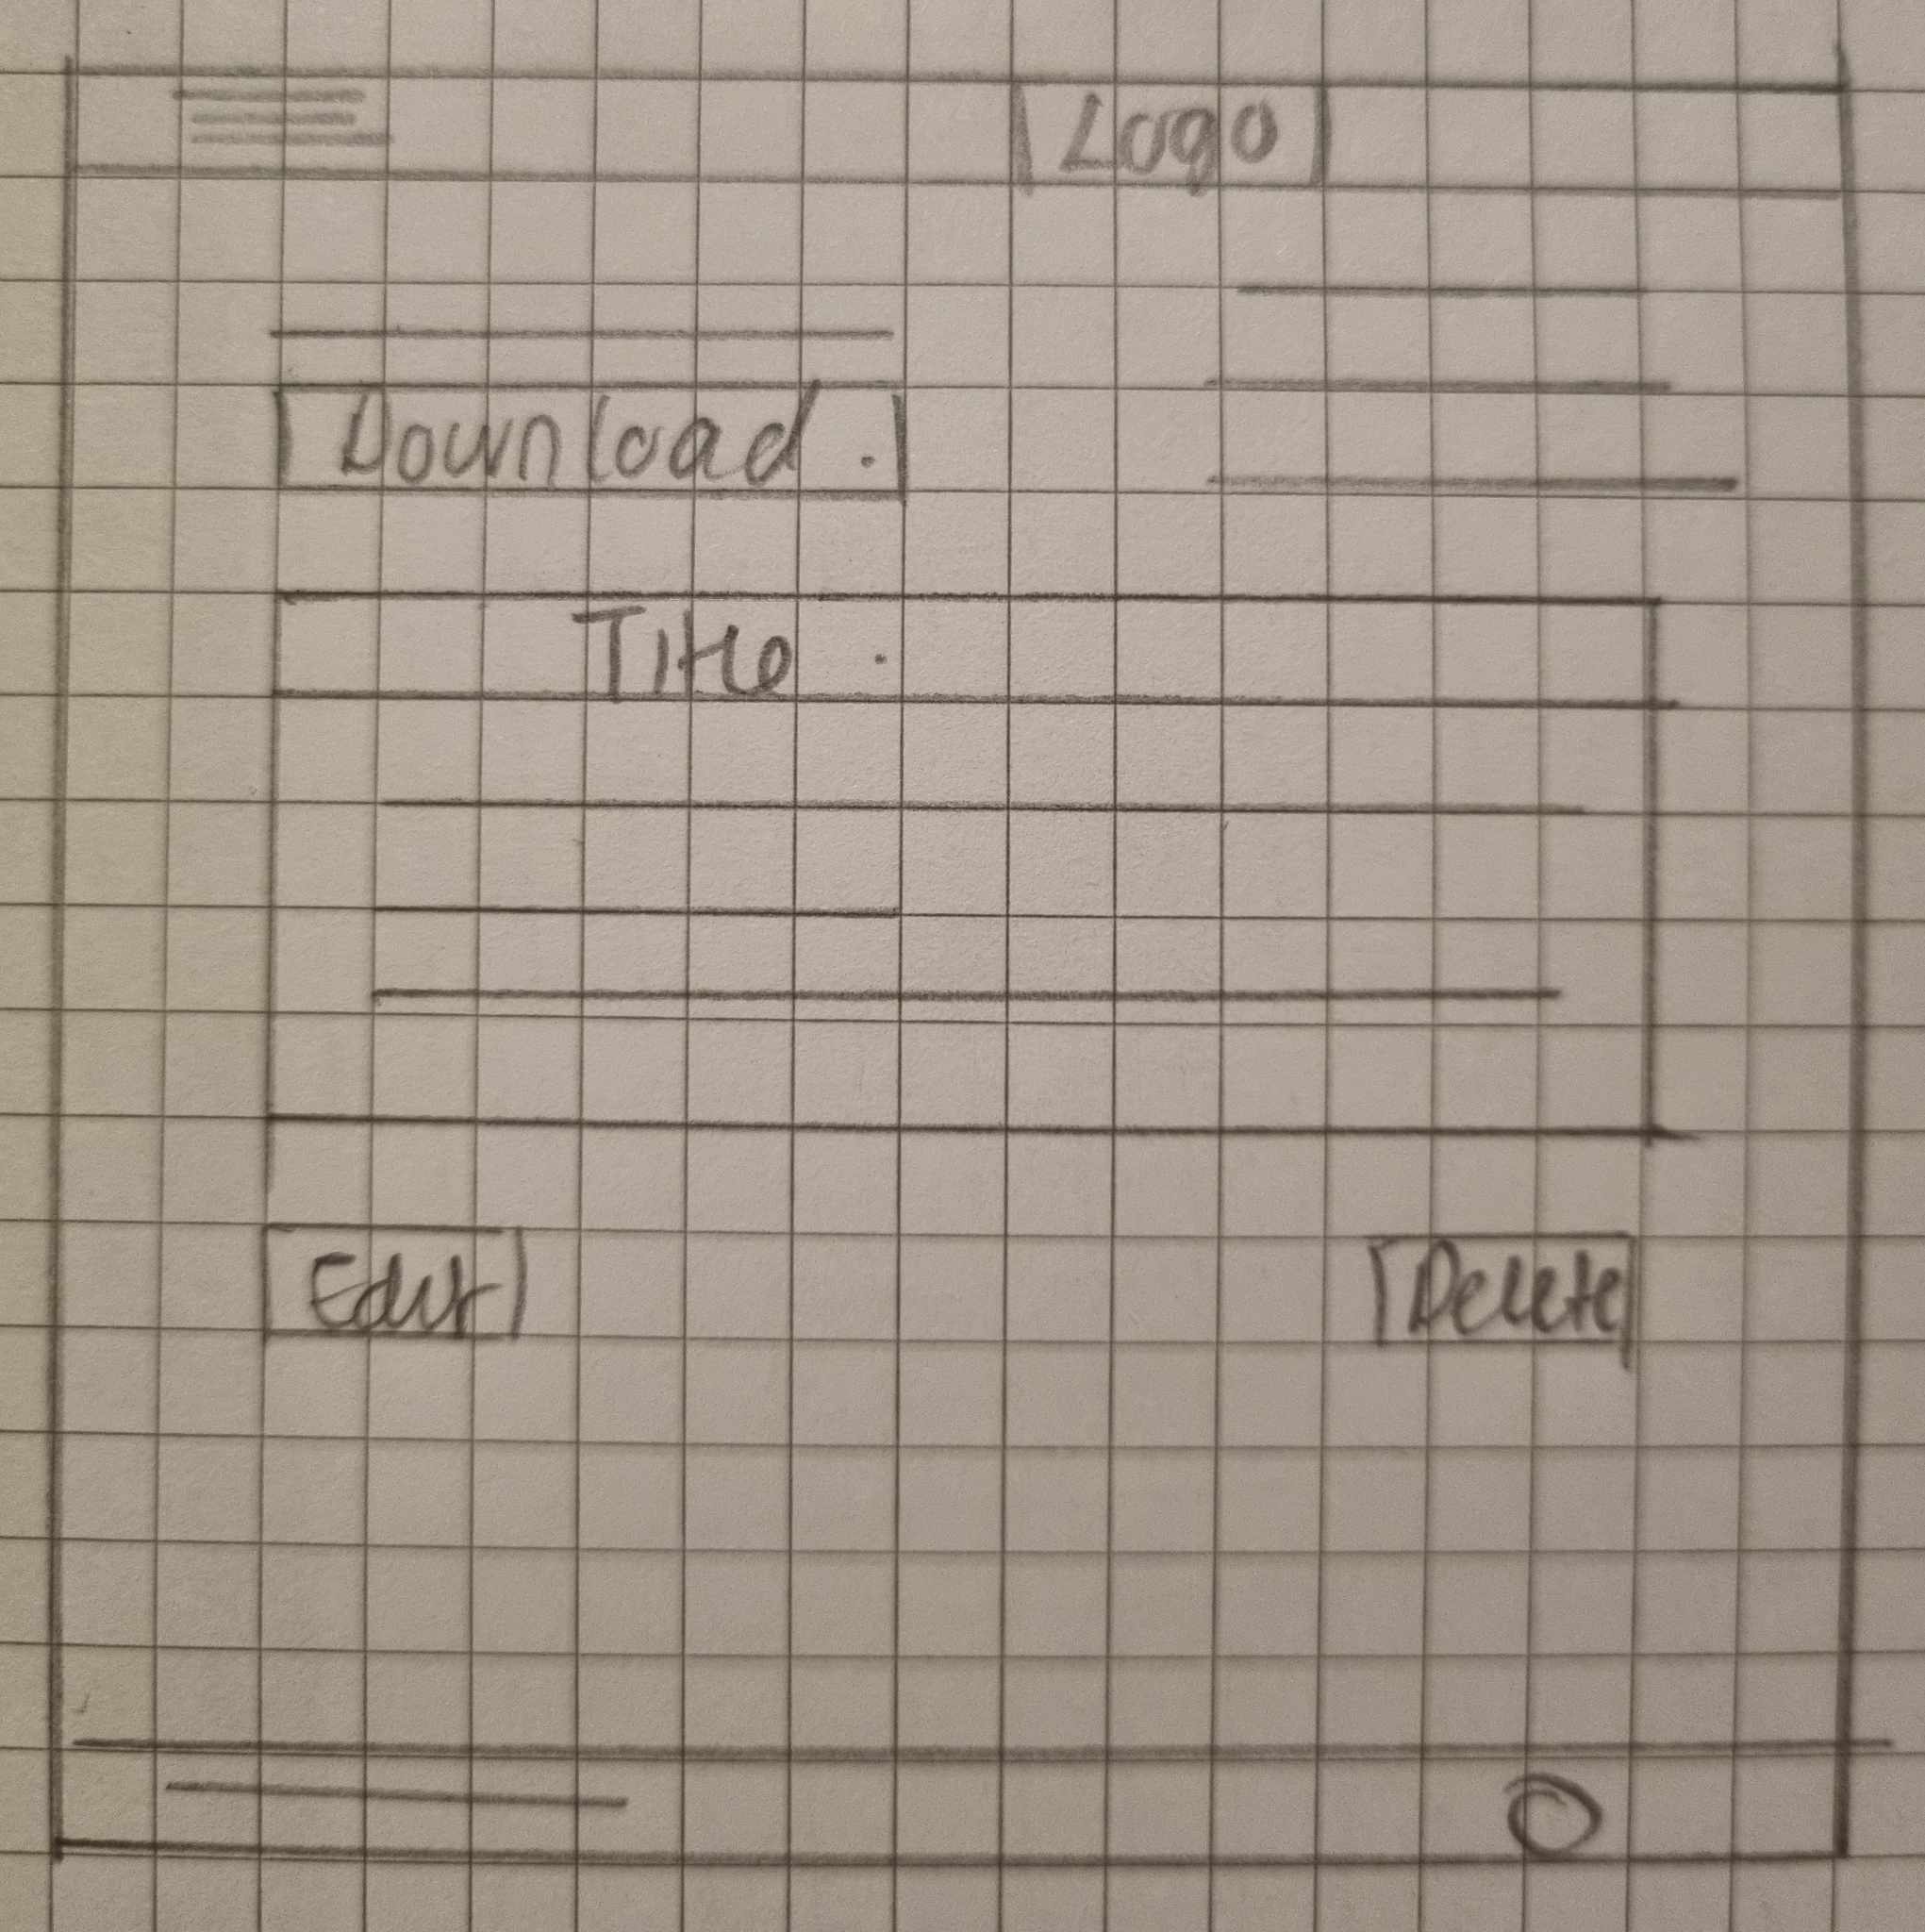 Logo
Download
Title
Edit
Delete